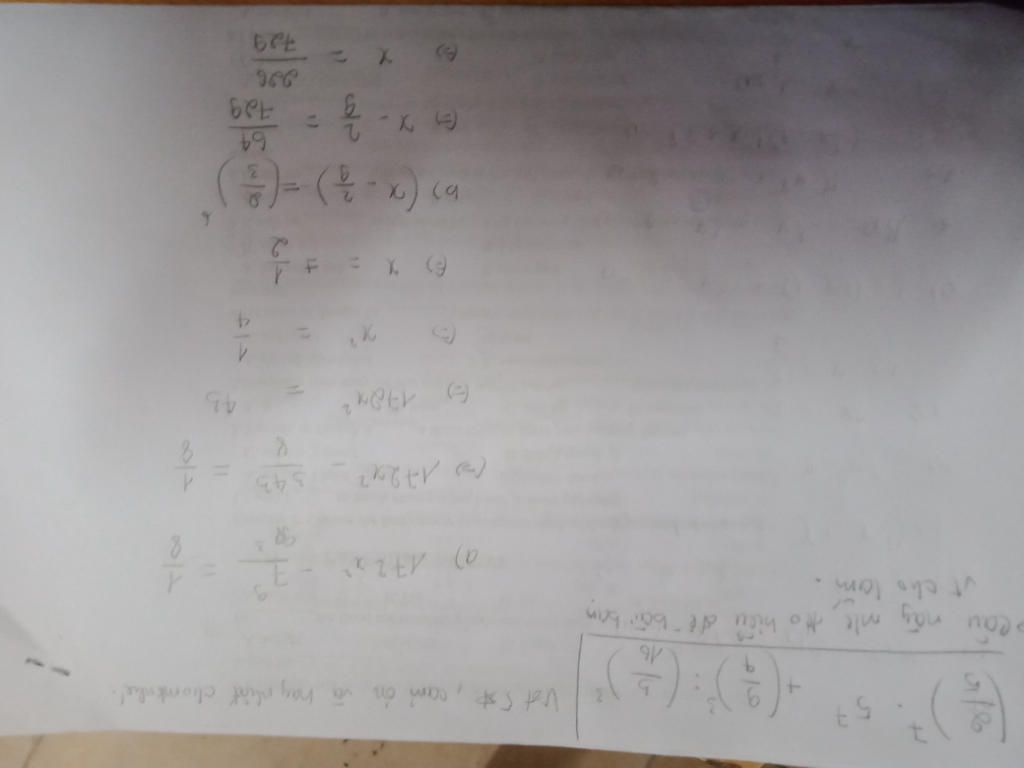 (2/5)^7 . 5^7 + (9/4)^3 : (3/16)^3
cảm ơn và hay nhất cho mk nhé!
câu này mk ko hiểu đề bài bạn
vt cho lắm.
a) 172x² - 7^9/98^3 = 1/8
(=) 172x² - 343/8 = 1/8
(=) 172x² = 43
(=) x² = 1/4
(=) x = ± 1/2
b) (x - 2/9) = (2/3)^6
(=) x - 2/9 = 64/729
(=) x = 226/729